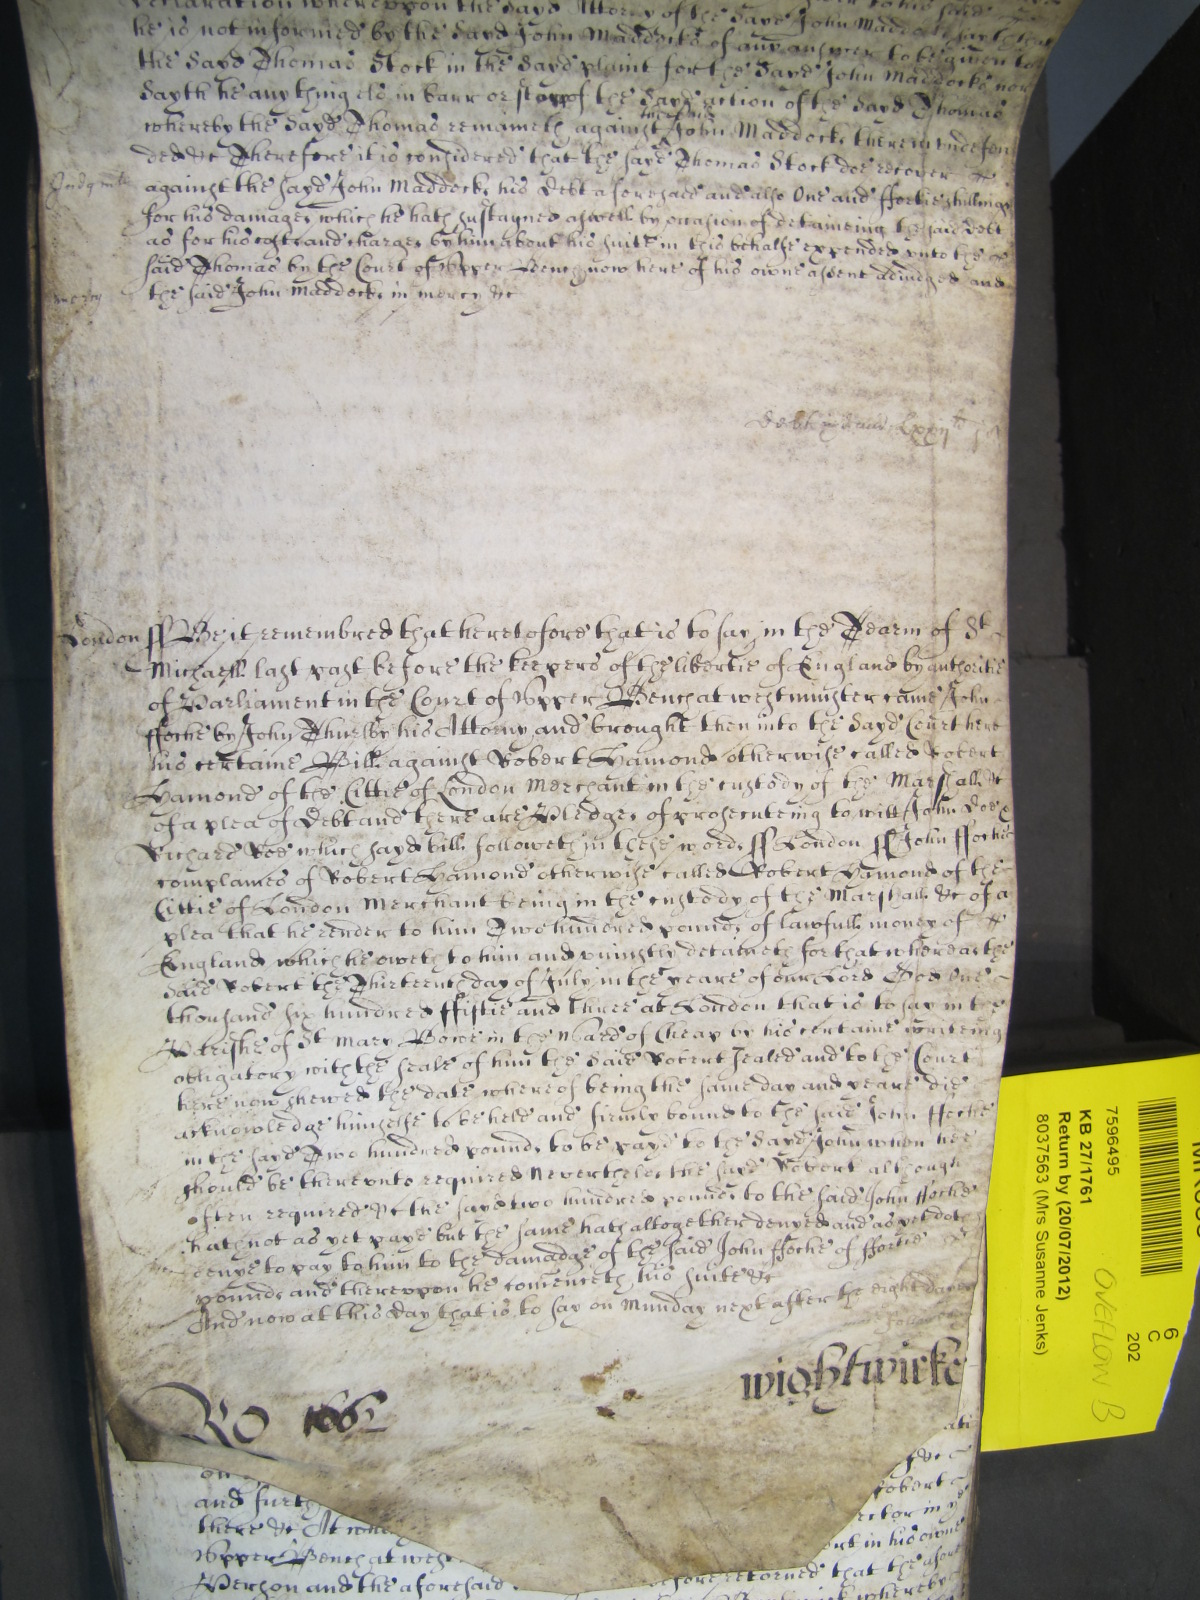 declaration whereupon the sayd Attorny of the sayd John Maddocks sayth that
he is not informed by the sayd John Maddocks of any answer to be given to
the sayd Thomas Stock in the sayd plaint for the sayd John Maddocks nor
sayth he any thing els in barr or stopp of the sayd action of the sayd Thomas
whereby the sayd Thomas remaineth against the sayd John Maddocks therein undefen
ded &c Therefore it is considered that the sayd Thomas Stock doe recover
Judgmt
against the sayd John Maddocks his debt aforesaid and also One and ffortie shillings
for his damages which he hath sustayned aswell by occasion of detaineing the said debt
as for his costs and charges by him about his suite in this behalfe expended unto the
said Thomas by the Court of Upper Bench now here of his owne assent adiudged and
mercy
the said John Maddocks in mercy &c
London ss Be it remembred that heretofore that is to say in the Tearm of St
Michaell last past before the keepers of the libertie of England by authoritie
of Parliament in the Court of Upper Bench at westminster came John
ffoche by John Thurlby his Attorny and brought then into the sayd Court here
his certaine Bill against Robert Hamond otherwise called Robert
Hamond of the Cittie of London Merchant in the custody of the Marshall &c
of a plea of Debt and there are Pledges of prosecuteing to witt John Doe &
Richard Roe which sayd bill followeth in these words ss London ss John ffoche
complaines of Robert Hamond otherwise called Robert Hamond of the
Cittie of London Merchant being in the custody of the Marshall &c of a
plea that he render to him Two hundred pounds of lawfull money of
England which he oweth to him and uniustly detaineth for that whereas the
said Robert the Thirteenth day of July in the yeare of our Lord God One
thousand six hundred ffiftie and three at London that is to say in the
Parishe of St Mary Bowe in the Ward of Cheap by his certaine writeing
obligatory with the seale of him the said Robert sealed and to the Court
here now shewed the date whereof being the same day and yeare did
acknowledge himselfe to be held and firmly bound to the said John ffoche
in the sayd Two hundred pounds to be payd to the sayd John when hee
should be thereunto required Nevertheles the sayd Robert although
often required &c the sayd two hundred pounds to the said John ffoche
hath not as yet payd but the same hath altogether denyed and as yet doth
denye to pay to him to the damadge of the said John ffoche of ffortie
pounds and thereupon he comenceth his suite &c
And now at this day that is to say on Munday next after the eight dayes
wightwicke
Ro 1662
and furth
there &c At
Robert
Upper Bench at wes
rt in his owne
Person and the aforesaid
retorned that the afore
whereby
7596495
KB 27/1761
Return by (20/07/2012)
8037563 (Mrs Susanne Jenks)
6
C
202
OVEFLOW B